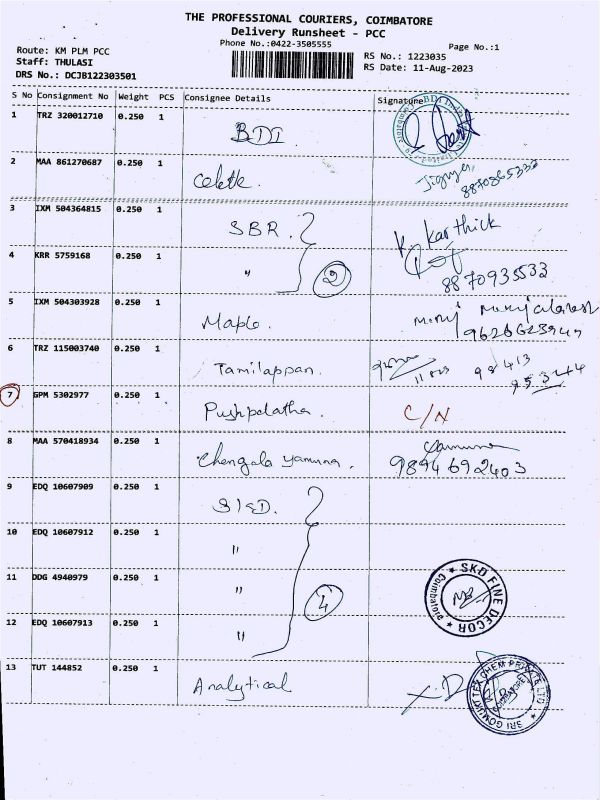 THE PROFESSIONAL COURIERS, COIMBATORE
Delivery Runsheet - PCC
Phone No.:0422-3505555
Page No.:1
Route: KM PLM PCC
RS No.: 1223035
Staff: THULASI
RS Date: 11-Aug-2023
DRS No.: DCJB122303501
S No Consignment No Weight PCS Consignee Details Signature
1 TRZ 320012710 0.250 1 BDI
2 MAA 861270687 0.250 1
3 IXM 504364815 0.250 1 SBR. K. Karthick
4 KRR 5759168 0.250 1 " 2 8870935533
5 IXM 504303928 0.250 1 Maple.
6 TRZ 115003740 0.250 1 Tamilappan.
7 GPM 5302977 0.250 1 Pushpelatha. C/N
8 MAA 570418934 0.250 1 Chengala yamuna. Yamuna
9894692403
9 EDQ 10607909 0.250 1
10 EDQ 10607912 0.250 1 "
11 DDG 4940979 0.250 1 " 4 SKD FINE DECOR Coimbatore
12 EDQ 10607913 0.250 1 "
13 TUT 144852 0.250 1 Analytical SRI GOMUKI TEX CHEM PRIVATE LTD COIMBATORE